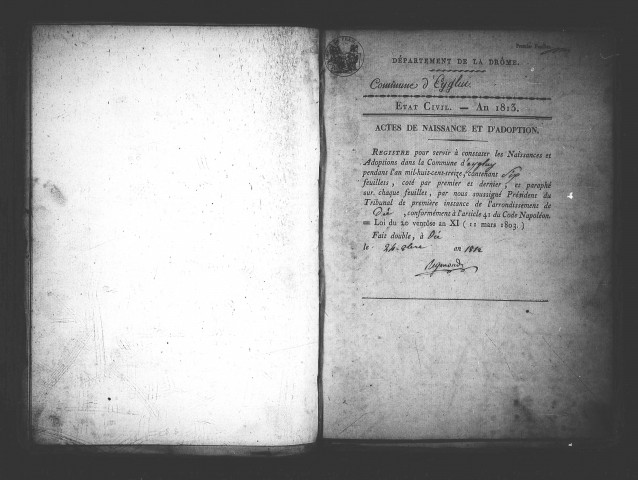 Premier Feuillet
DÉPARTEMENT DE LA DRÔME.
Commune d'Eygluy.
ETAT CIVIL. — AN 1813.
ACTES DE NAISSANCE ET D'ADOPTION.
REGISTRE pour servir à constater les Naissances et
Adoptions dans la Commune d'eygluy
pendant l'an mil-huit-cent-treize, contenant Six
feuillets, coté par premier et dernier, et paraphé
sur chaque feuilles, par nous soussigné Président du
Tribunal de première instance de l'arrondissement de
Dié, conformément à l'article 41 du Code Napoléon.
= Loi du 20 ventôse an XI ( 11 mars 1803. )
Fait double, à Dié
le 24 xbre an 1812